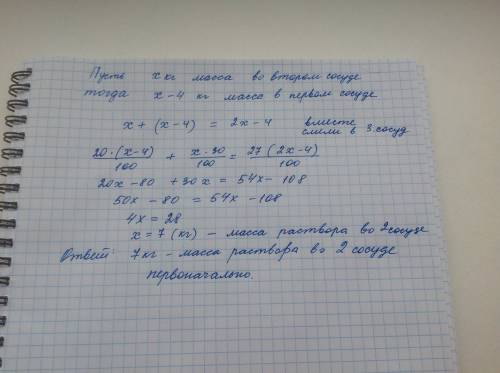 Пусть x кг масса во втором сосуде
тогда x-4 кг масса в первом сосуде
x + (x-4) = 2x-4 вместе
слили в 3. сосуд
20·(x-4)/100 + x·30/100 = 27(2x-4)/100
20x - 80 + 30x = 54x - 108
50x - 80 = 54x - 108
4x = 28
x = 7 (кг) - масса раствора во 2 сосуде
Ответ: 7 кг - масса раствора во 2 сосуде
первоначально.